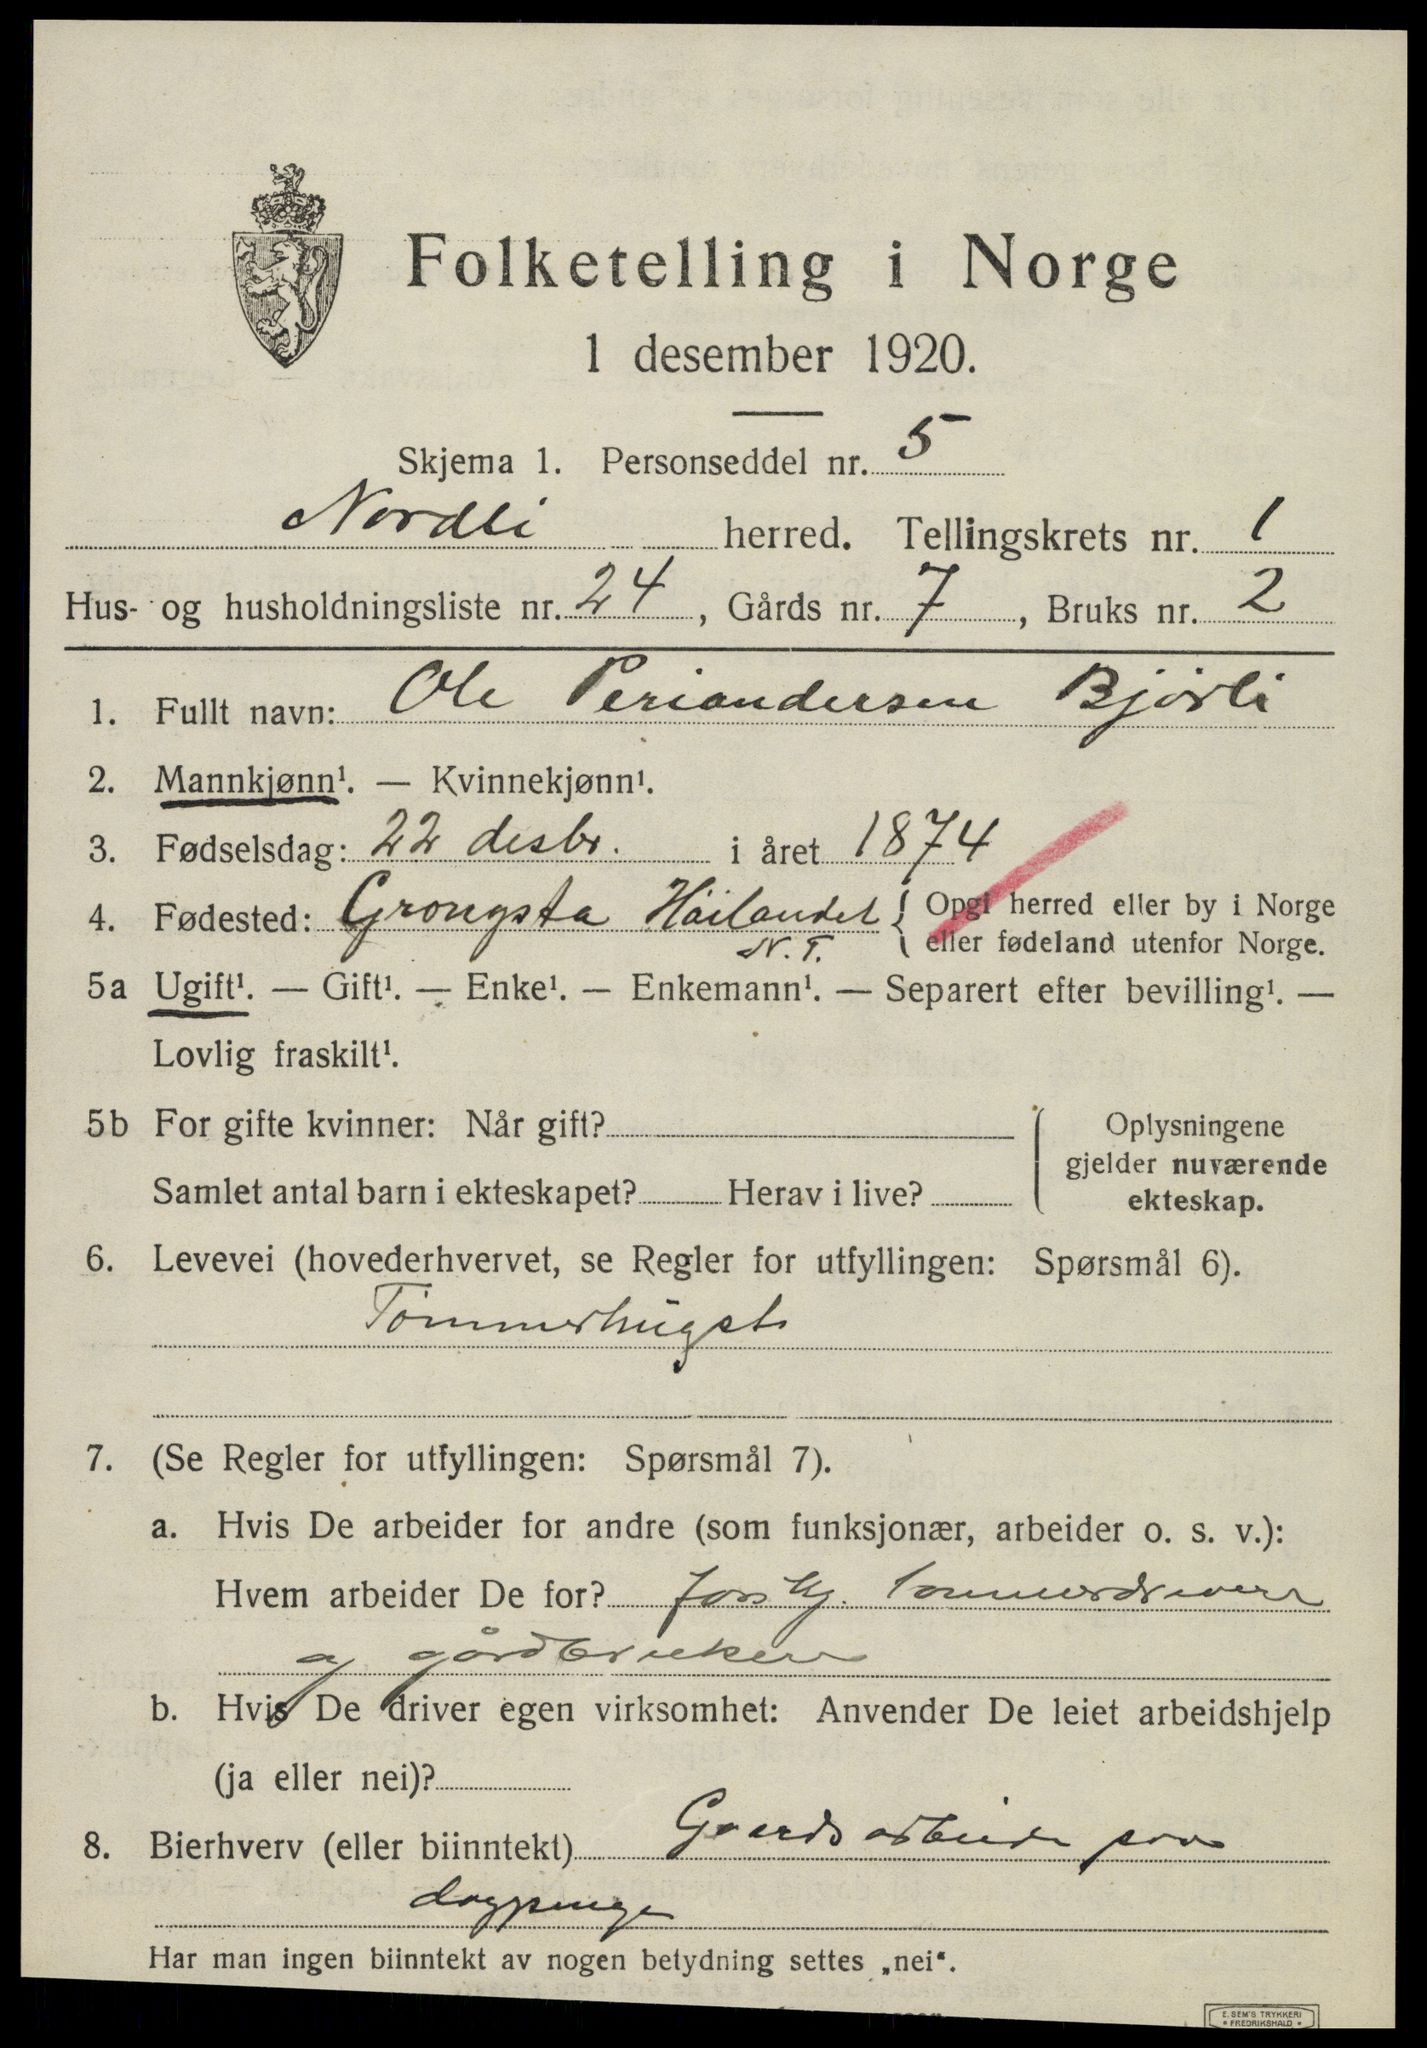 Folketelling i Norge
1 desember 1920.
Skjema 1. Personseddel nr. 5
Nordli herred. Tellingskrets nr. 1
Hus- og husholdningsliste nr. 24, Gårds nr. 7, Bruks nr. 2
1. Fullt navn: Ole Periandersen Bjørli
2. Mannkjønn¹. — Kvinnekjønn¹.
3. Fødselsdag: 22 desbr. i året 1874
4. Fødested: Grongsta Höilandet { Opgi herred eller by i Norge
N. T. eller fødeland utenfor Norge.
5a Ugift¹. — Gift¹. — Enke¹. — Enkemann¹. — Separert efter bevilling¹. —
Lovlig fraskilt¹.
5b For gifte kvinner: Når gift? Oplysningene
gjelder nuværende
Samlet antal barn i ekteskapet? Herav i live? ekteskap.
6. Levevei (hovederhvervet, se Regler for utfyllingen: Spørsmål 6).
Tömmerhugst
7. (Se Regler for utfyllingen: Spørsmål 7).
a. Hvis De arbeider for andre (som funksjonær, arbeider o. s. v.):
Hvem arbeider De for? forskj. tømmerdrivere
og gårdbrukere
b. Hvis De driver egen virksomhet: Anvender De leiet arbeidshjelp
(ja eller nei)?
8. Bierhverv (eller biinntekt) Gaardsarbeide paa
dagpenge
Har man ingen biinntekt av nogen betydning settes „nei“.
E. SEM'S TRYKKERI
FREDRIKSHALD